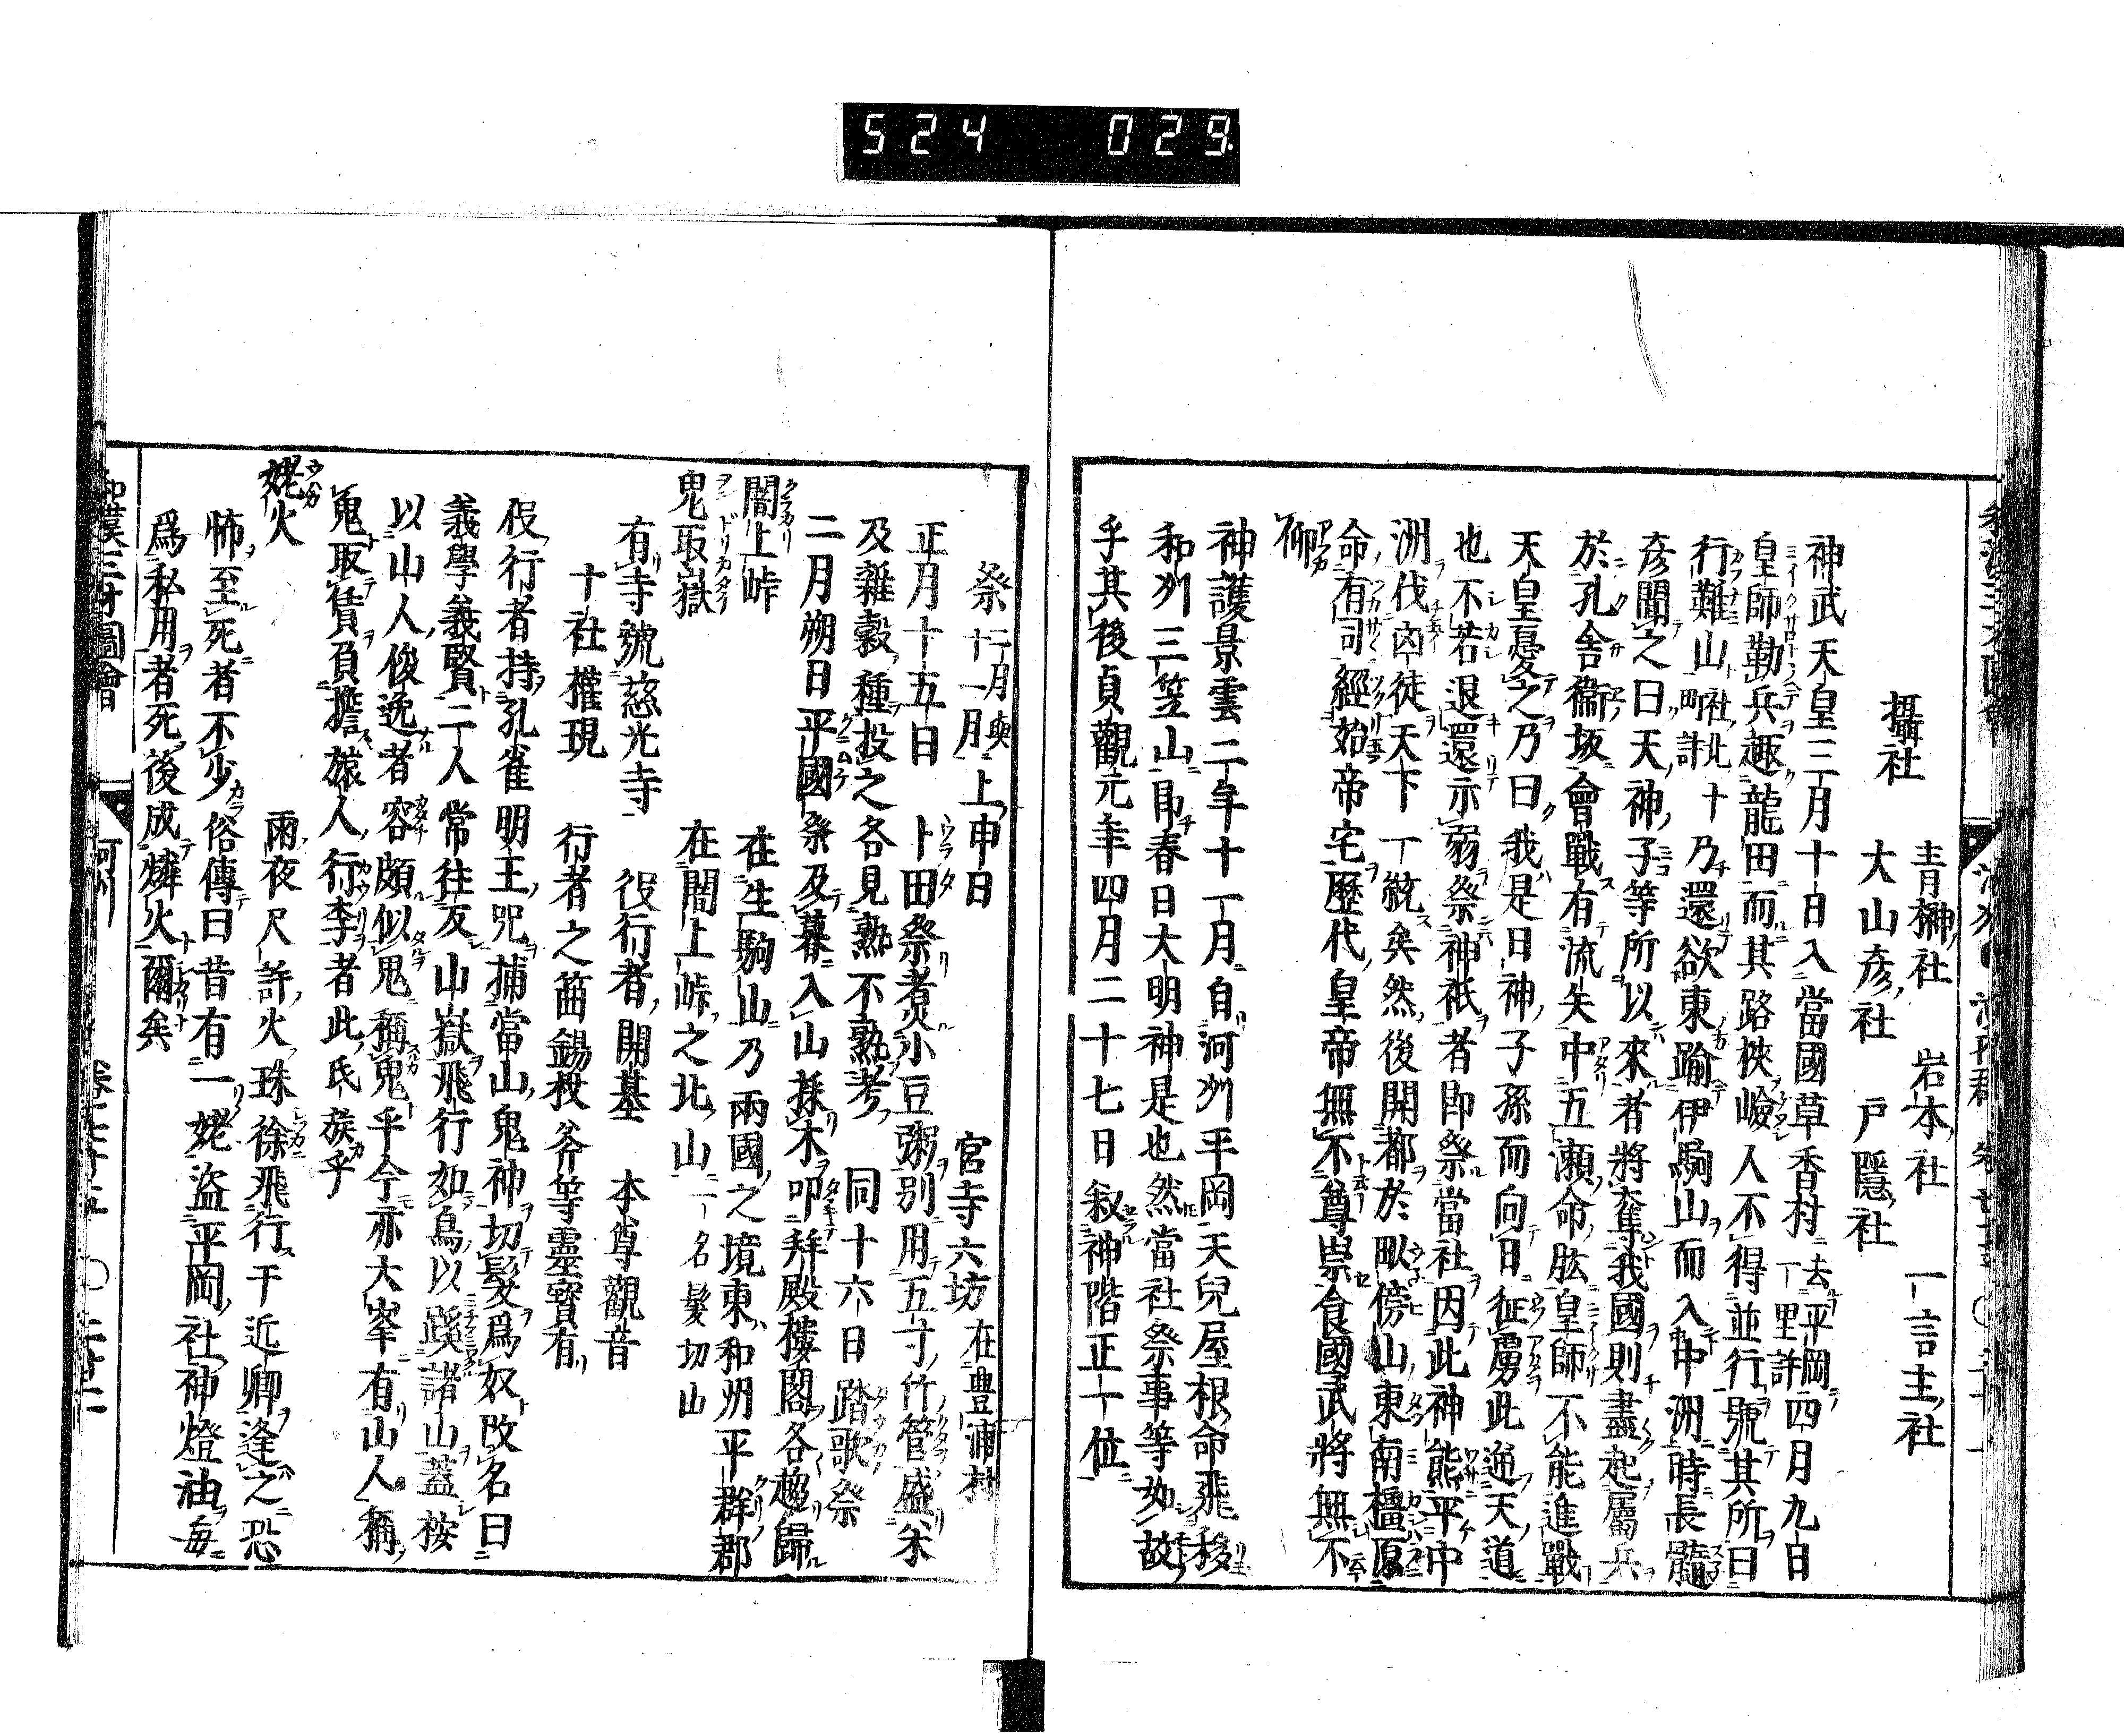 524 029
攝社 青榊社 岩本社 一言主社
大山彦社 戸隱社
神武天皇三月十日入當國草香村去平岡一里許四月九日
皇師勒兵趣龍田而其路挾嶮人不得並行號其所曰
行難山社北十町許乃還欲東踰伊駒山而入中洲時長髓
彦聞之曰天神子等所以來者將奪我國則盡起屬兵
於孔舎衞坂會戰有流矢中五瀬命肱皇師不能進戰
天皇憂之乃曰我是日神子孫而向日征虜此逆天道
也不若退還示弱祭神祇者即祭當社因此神熊平中
洲伐凶徒天下一統矣然後開都於畒傍山東南橿原
命有司經始帝宅歷代皇帝無不尊崇食國武將無不
仰
神護景雲二年十一月自河刕平岡天兒屋根命飛移
和刕三笠山即春日大明神是也然當社祭事等如故
乎其後貞觀元年四月二十七日叙神階正一位
祭二月與十一月上申日 宮寺六坊在豊浦村
正月十五日卜田祭煮小豆粥別用五寸竹管盛米
及雜穀種投之各見熟不熟考 同十六日踏歌祭
二月朔日平國祭及暮入山採木叩拜殿樓閣各趨歸
闇上峠 在生駒山乃兩國之境東和刕平群郡
鬼取嶽 在闇上峠之北山一名髮切山
有寺號慈光寺 役行者開基 本尊觀音
十社權現 行者之笛錫杖斧等靈寳有
役行者持孔雀明王咒捕當山鬼神切髮爲奴改名曰
義學義賢二人常往反山嶽飛行如鳥以蹊諸山蓋按
以山人俊逸者容頗似鬼稱鬼乎今亦大峯有山人稱
鬼取賃負擔旅人行李者此氏族乎
姥火 雨夜尺許火珠徐飛行于近郷逢之恐
怖至死者不少俗傳曰昔有一姥盜平岡社神燈油毎
爲私用者死後成燐火爾矣
和漢三才圖會 河州